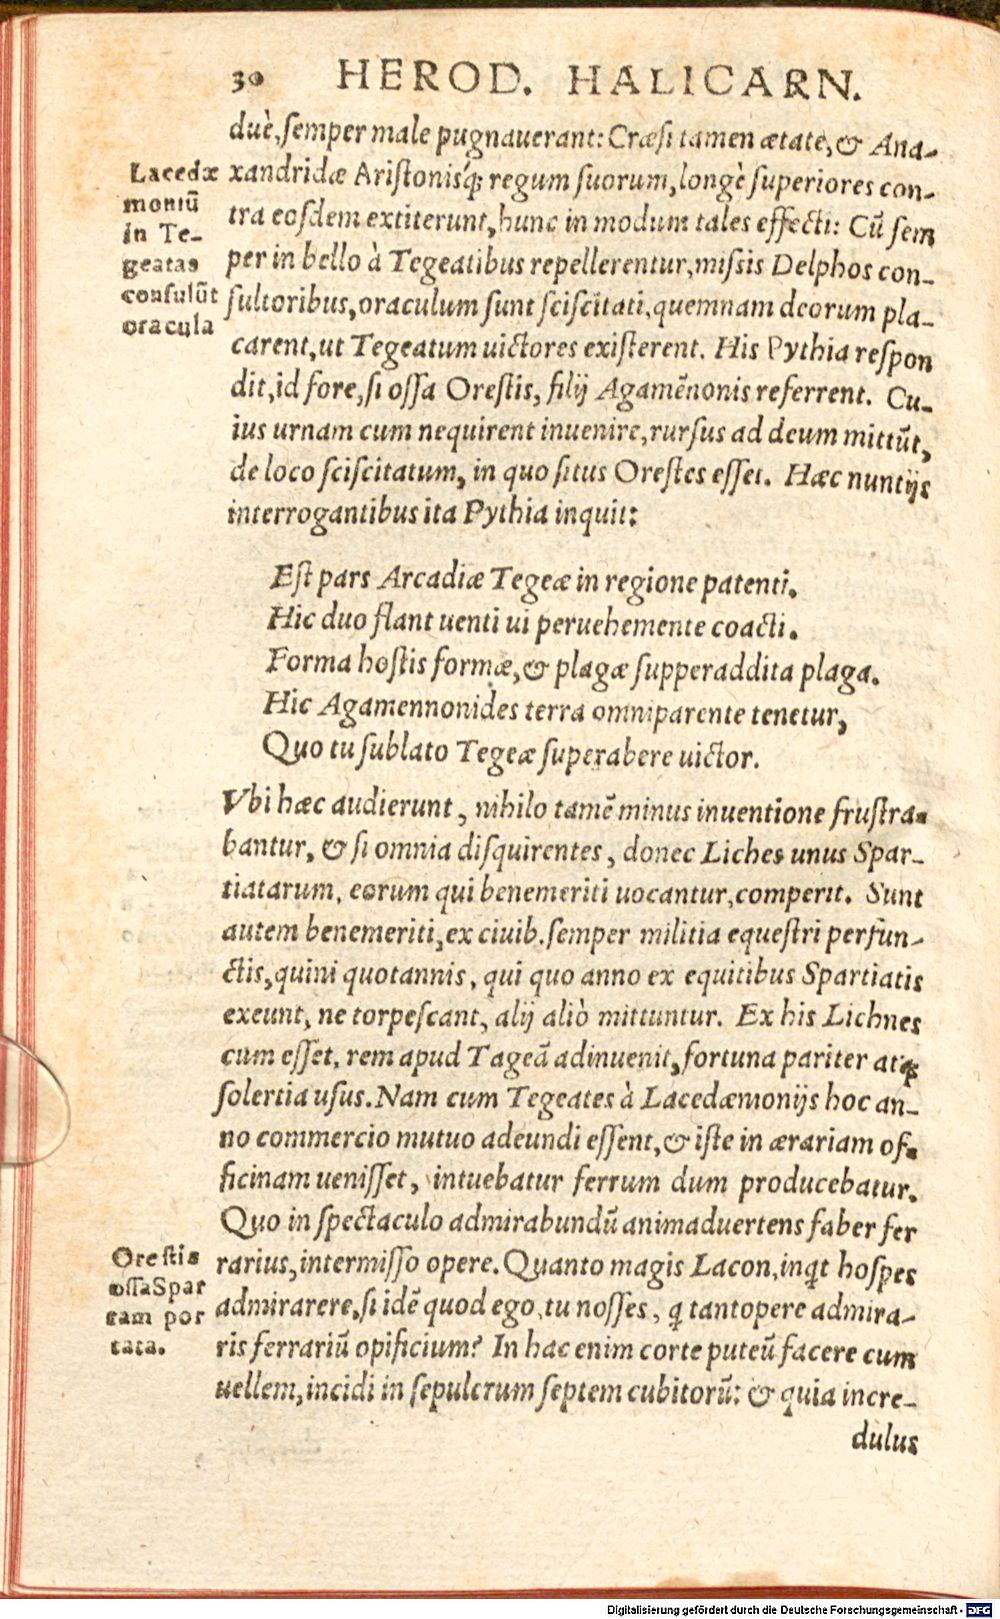 30 HEROD. HALICARN.
duè, ſemper male pugnauerant: Cræſi tamen ætate, & Ana-
xandridæ Ariſtonisq́; regum ſuorum, longè ſuperiores con-
tra eoſdem extiterunt, hunc in modum tales effecti: Cũ ſem
per in bello à Tegeatibus repellerentur, miſsis Delphos con-
ſultoribus, oraculum ſunt ſciſcitati, quemnam deorum pla-
carent, ut Tegeatum uictores exiſterent. His Pythia reſpon
dit, id fore, ſi oſſa Oreſtis, filij Agamẽnonis referrent. Cu-
ius urnam cum nequirent inuenire, rurſus ad deum mittũt,
de loco ſciſcitatum, in quo ſitus Oreſtes eſſet. Hæc nuntijs
interrogantibus ita Pythia inquit:
Lacedæ
moniũ
in Te-
geatas
conſulũt
oracula
Eſt pars Arcadiæ Tegeæ in regione patenti.
Hic duo flant uenti ui peruehemente coacti.
Forma hoſtis formæ, & plagæ ſupperaddita plaga.
Hic Agamennonides terra omniparente tenetur,
Quo tu ſublato Tegeæ ſuperabere uictor.
Vbi hæc audierunt, nihilo tamẽ minus inuentione fruſtra-
bantur, & ſi omnia diſquirentes, donec Liches unus Spar-
tiatarum, eorum qui benemeriti uocantur, comperit. Sunt
autem benemeriti, ex ciuib. ſemper militia equeſtri perfun-
ctis, quini quotannis, qui quo anno ex equitibus Spartiatis
exeunt, ne torpeſcant, alij aliò mittuntur. Ex his Lichnes
cum eſſet, rem apud Tageã adinuenit, fortuna pariter atq́;
ſolertia uſus. Nam cum Tegeates à Lacedæmonijs hoc an-
no commercio mutuo adeundi eſſent, & iſte in ærariam of-
ficinam ueniſſet, intuebatur ferrum dum producebatur.
Quo in ſpectaculo admirabundũ animaduertens faber fer
rarius, intermiſſo opere. Quanto magis Lacon, inꝗt hoſpes
admirarere, ſi idẽ quod ego, tu noſſes, ꝗ tantopere admira-
ris ferrariũ opificium? In hac enim corte puteũ facere cum
uellem, incidi in ſepulcrum ſeptem cubitorũ: & quia incre-
dulus
Oreſtis
oſſa Spar
tam por
tata.
Digitalisierung gefördert durch die Deutsche Forschungsgemeinschaft - DFG